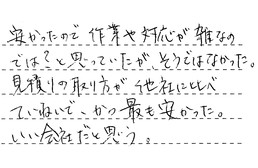 安かったので作業や対応が雑なの
では?と思っていたが、そうではなかった。
見積りの取り方が他社に比べ
ていねいで、かつ最も安かった。
いい会社だと思う。